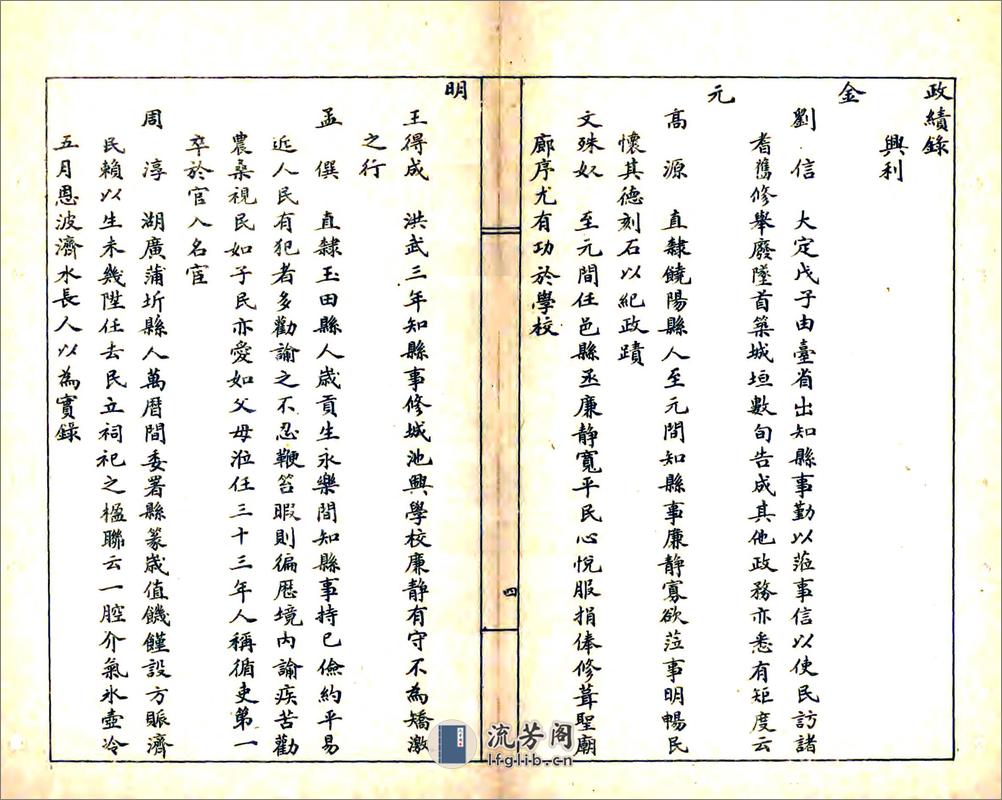 政績錄
興利
金
劉　信　大定戊子由臺省出知縣事勤以蒞事信以使民訪諸
耆舊修舉廢墜首築城垣數旬告成其他政務亦悉有矩度云
元
高　源　直隸饒陽縣人至元間知縣事廉靜寡欲蒞事明暢民
懷其德刻石以紀政蹟
文殊奴　至元間任邑縣丞廉靜寬平民心悅服捐俸修葺聖廟
廊序尤有功於學校
四
明
王得成　洪武三年知縣事修城池興學校廉靜有守不為矯激
之行
孟　僎　直隸玉田縣人歲貢生永樂間知縣事持已儉約平易
近人民有犯者多勸諭之不忍鞭笞暇則徧歷境內諭疾苦勸
農桑視民如子民亦愛如父母涖任三十三年人稱循吏第一
卒於官入名宦
周　淳　湖廣蒲圻縣人萬曆間委署縣篆歲值饑饉設方賑濟
民賴以生未幾陞任去民立祠祀之楹聯云一腔介氣氷壺冷
五月恩波濟水長人以為實錄
流芳阁
lfglib.cn